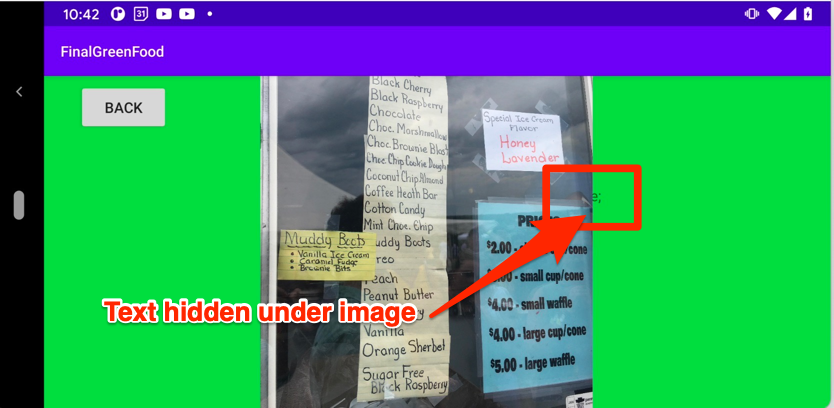 10:42
31
FinalGreenFood
BACK
Black Cherry
Black Raspberry
Chocolate
Choc. Marshmallow
Choc. Brownie Blast
Choc. Chip Cookie Dough
Coconut Chip Almond
Coffee Heath Bar
Cotton Candy
Mint Choc. Chip
uddy Boots
reo
each
Peanut Butter
y
Vanilla
Orange Sherbet
Sugar Free
Black Raspberry
Muddy Boots
• Vanilla Ice Cream
• Caramel Fudge
• Brownie Bits
Special Ice Cream
Flavor
Honey
Lavender
e;
$2.00 - /cone
.00 - small cup/cone
$4.00 - small waffle
$4.00 - large cup/cone
$5.00 - large waffle
Text hidden under image